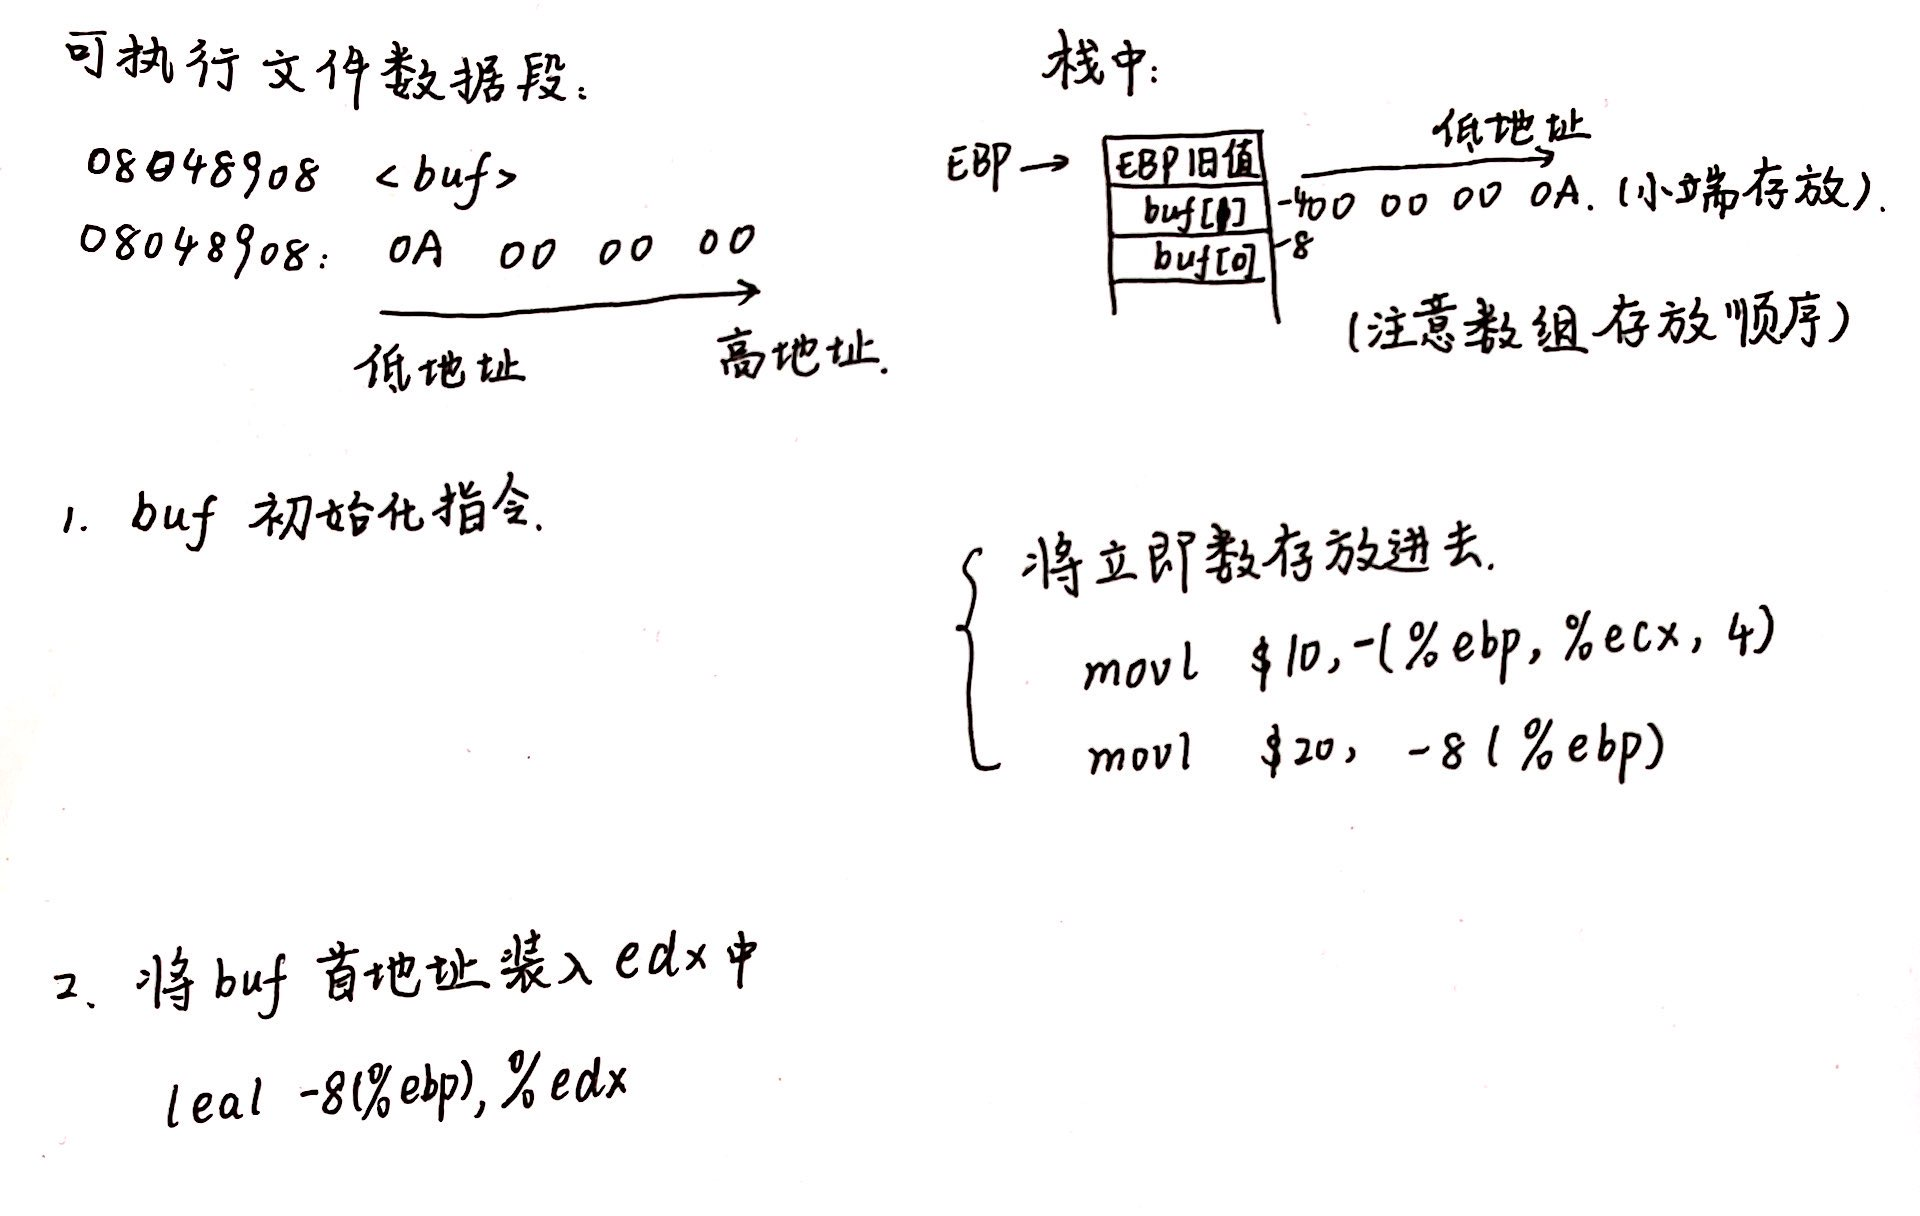 可执行文件数据段:
08048908 <buf>
08048908: 0A 00 00 00
低地址 高地址.
栈中:
低地址
EBP → EBP旧值
buf[1] -4 00 00 00 0A. (小端存放).
buf[0] -8
(注意数组存放顺序)
1. buf 初始化指令.
将立即数存放进去.
movl $10, -(%ebp, %ecx, 4)
movl $20, -8(%ebp)
2. 将buf首地址装入edx中
leal -8(%ebp), %edx